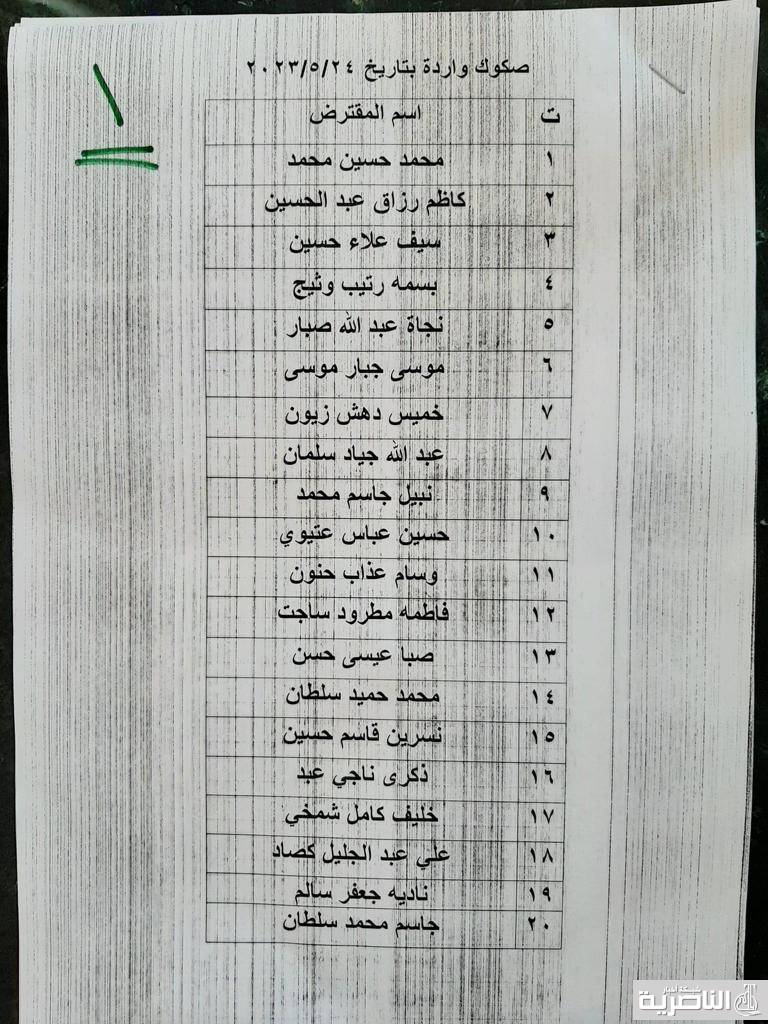 صكوك واردة بتاريخ ٢٠٢٣/٥/٢٤
١
ت اسم المقترض
١ محمد حسين محمد
٢ كاظم رزاق عبد الحسين
٣ سيف علاء حسين
٤ بسمه رتيب وثيج
٥ نجاة عبد الله صبار
٦ موسى جبار موسى
٧ خميس دهش زيون
٨ عبد الله جياد سلمان
٩ نبيل جاسم محمد
١٠ حسين عباس عتيوي
١١ وسام عذاب حنون
١٢ فاطمه مطرود ساجت
١٣ صبا عيسى حسن
١٤ محمد حميد سلطان
١٥ نسرين قاسم حسين
١٦ ذكرى ناجي عبد
١٧ خليف كامل شمخي
١٨ علي عبد الجليل كصاد
١٩ ناديه جعفر سالم
٢٠ جاسم محمد سلطان
شبكة أخبار
الناصرية